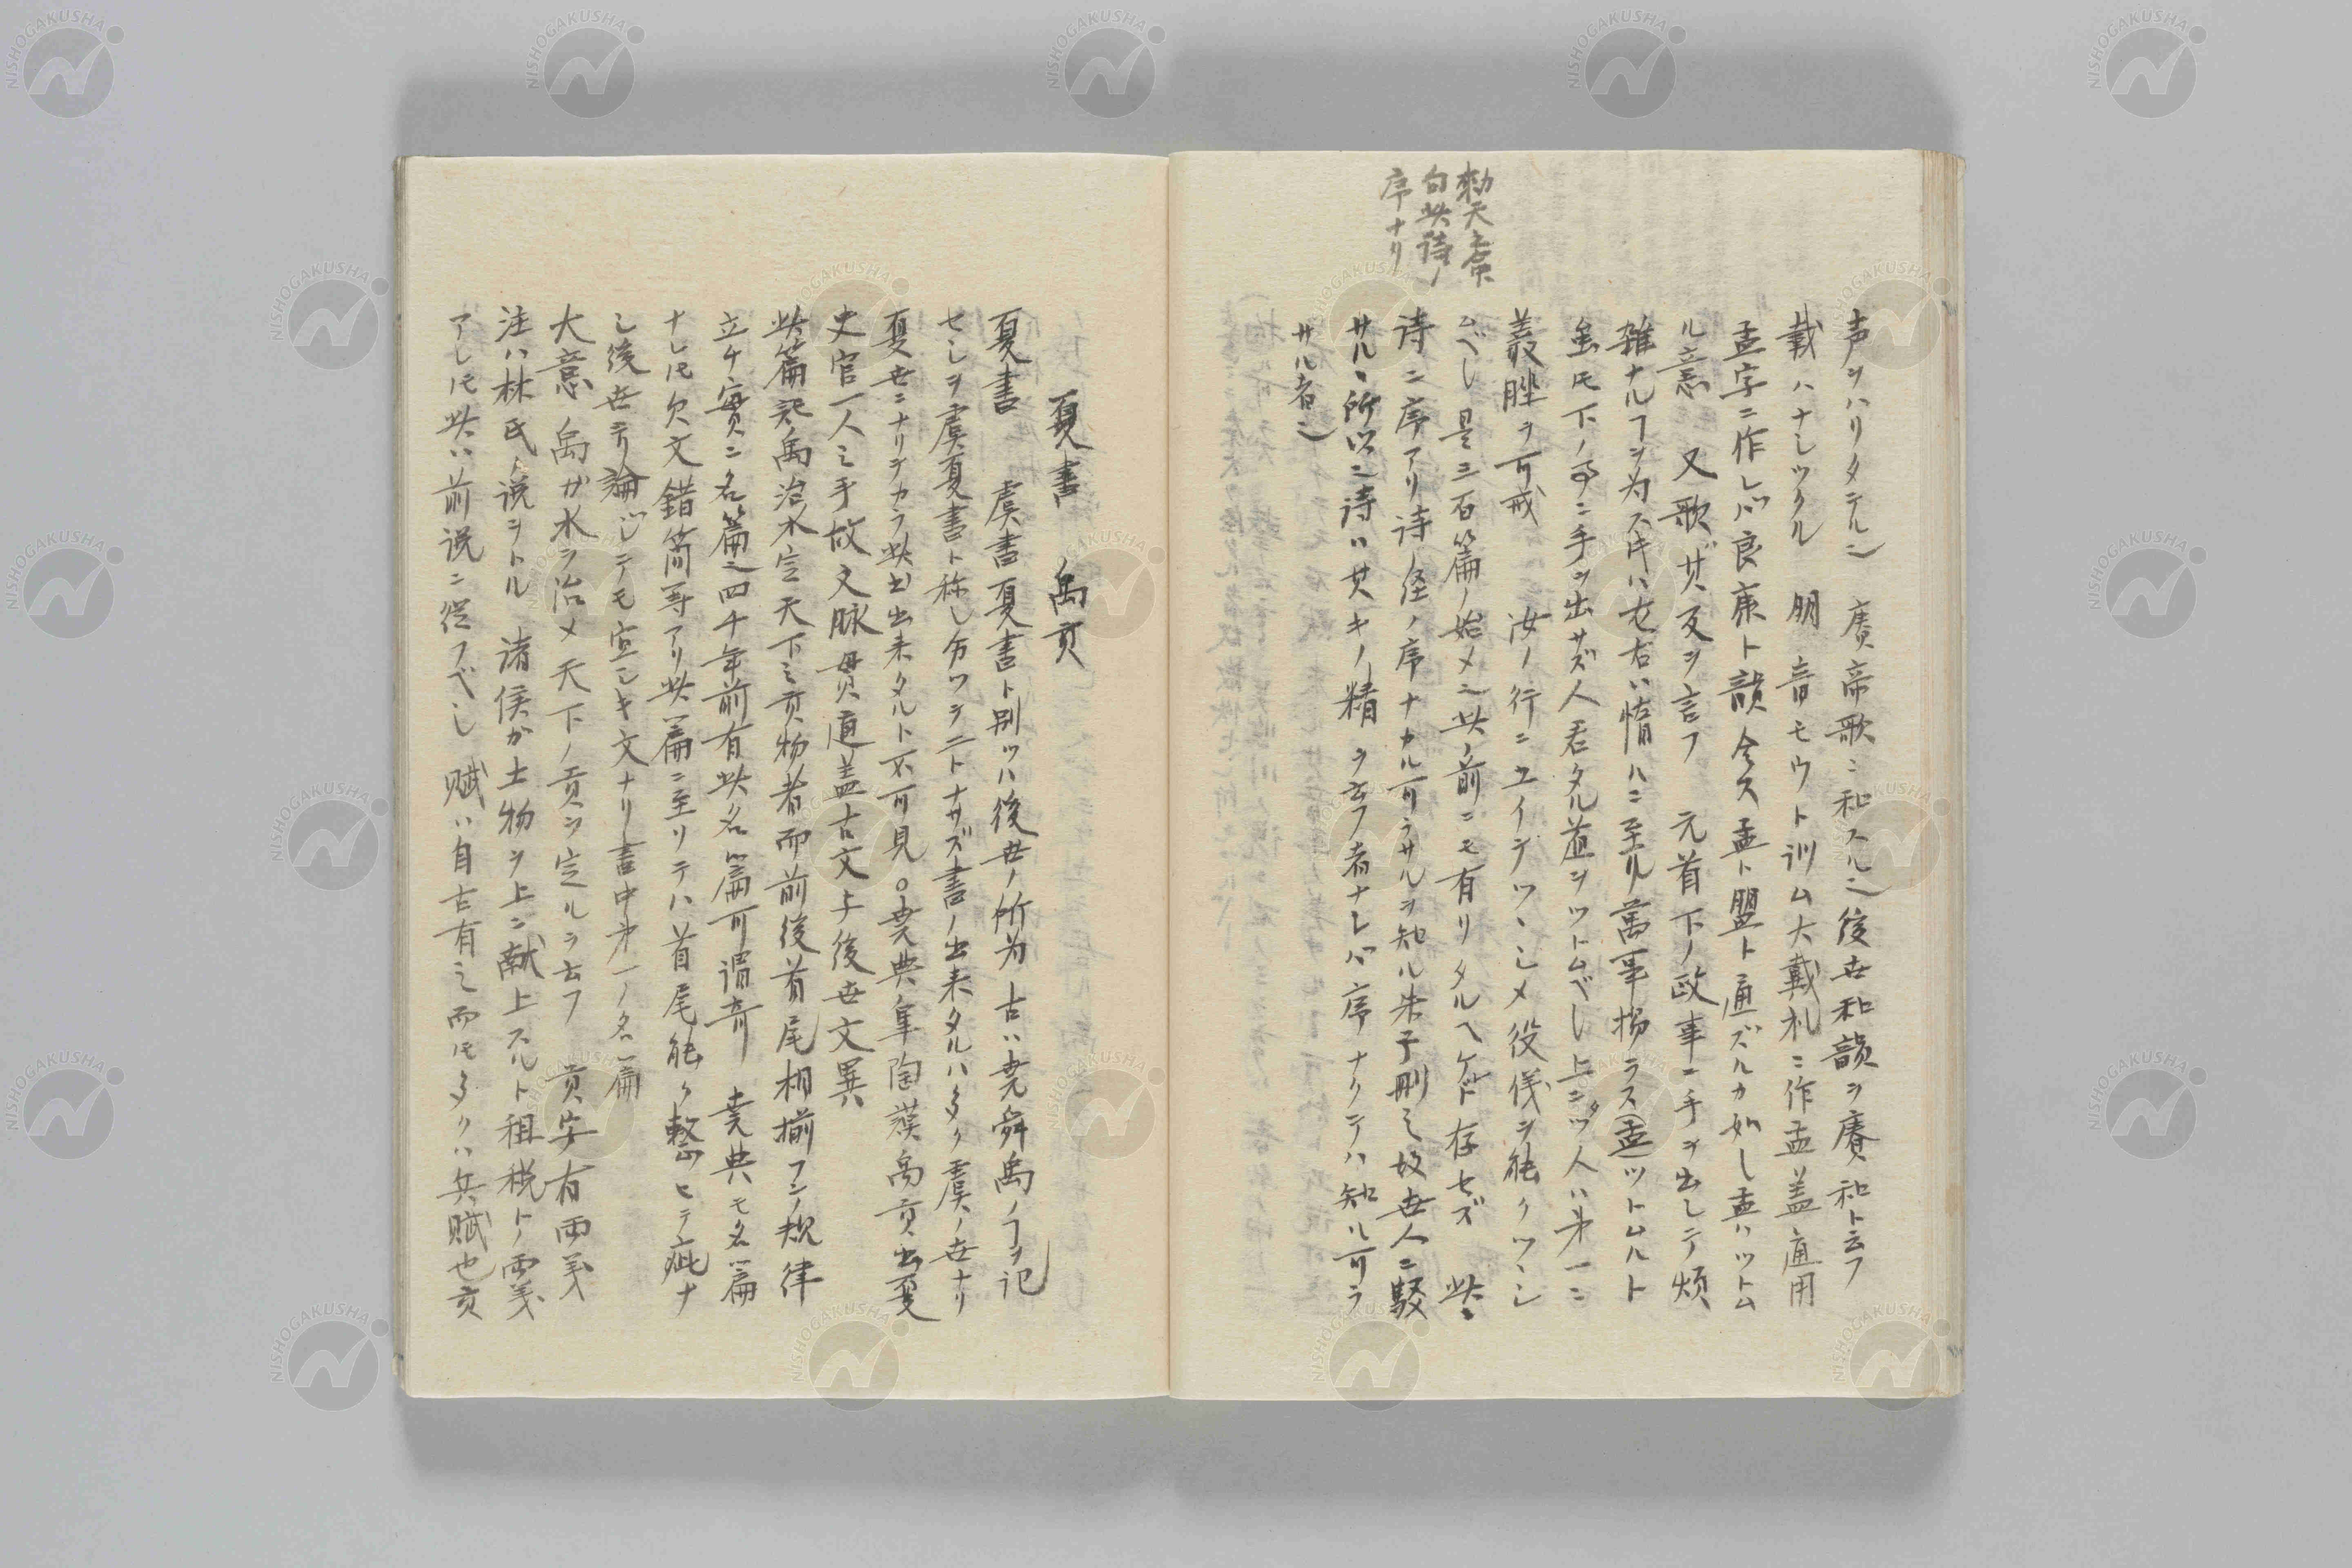 勅天之命
句此詩ノ
序ナリ
声ヲハリタテル也 賡帝歌ニ和スル也後世和韻ヲ賡和ト云フ
載ハナシツクル 明音モウト訓ム大戴礼ニ作孟蓋通用
孟字ニ作レバ良康ト韻合ス孟ト盟ト通ズルカ如し孟ハツトム
ル意 又歌ザ其反ヲ言フ 元首下ノ政事ニ手ヲ出シテ煩
雑ナルヿヲ为ス片ハ左右ハ惰ハニ至ル萬事揚ラス孟ツトムルト
虽𪜈下ノ事ニ手ヲ出サズ人君タル道ヲツトムベし上ニタツ人ハ第一ニ
叢脞ヲ可戒 汝ノ行ニツイテツヽシメ役儀ヲ能クツヽシ
ムべし 是三百篇ノ始メ也此ノ前ニモ有リタルヘケレド存セズ 此ニ
詩ニ序アリ詩ノ経ノ序ナカル可ラサルヲ知ル朱子刪之故世人ニ駁
サルヽ所以也詩ハ其キノ精ヲ云フ者ナレバ序ナクテハ知ル可ラ
サル者也
夏書 禹貢
夏書 虞書夏書ト別ツハ後世ノ所为古ハ堯舜禹ノヿヲ記
セシヲ虞夏書ト称し分ツテ二トナサズ書ノ出来タルハ多ク虞ノ世ナリ
夏世ニナリテカラ此出出来タルト不可見○堯典皐陶謨禹貢出夏
史官一人之手故文脉毌貫道蓋古文与後世文異
此篇記禹治水定天下之貢物者而前後首尾相揃フシノ規律
立ケ実ニ名篇也四千年前有此名篇可謂奇 堯典モ名篇
ナレ𪜈欠文錯簡等アリ此篇ニ至リテハ首尾能ク整ヒテ疵ナ
し後世ヨリ論ジテモ宜シキ文ナリ書中第一ノ名篇
大意 禹ガ水ヲ治メ天下ノ貢ヲ定ルヲ云フ 貢字有両義
注ハ林氏ノ説ヲトル 諸侯が土物ヲ上ニ献上スルト租税トノ両義
アレ𪜈此ハ前説ニ從フべし 賦ハ自古有之而𪜈多クハ兵賦也貢